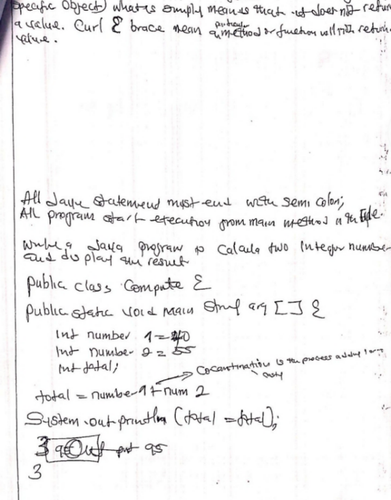 Specific Object) whereas simply means that it does not return
a value. Curl { brace mean a particular method or function will not return
value.
All Java statement must end with semi colon;
All program start execution from main method in the
Write a Java program to two Integer number
and display the result
public class Compute {
public static void main String arg [ ] {
Int number 1 = 40
Int number 2 = 55
Int total;
is the process adding
only
total = number 1 + num 2
System.out.println (total = total);
3 Out put 95
3